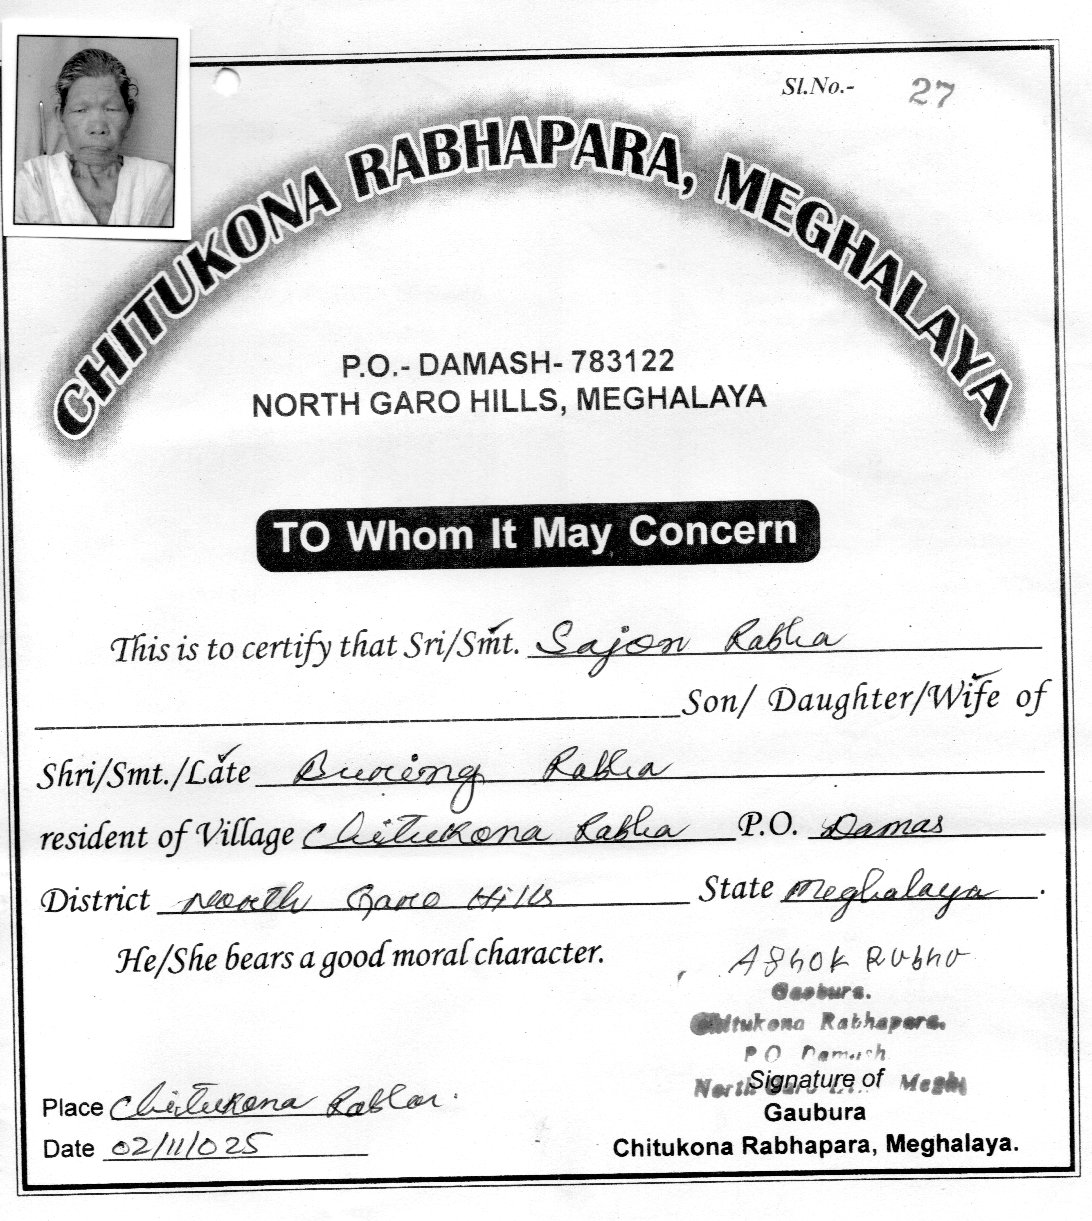 Sl.No.- 27
CHITUKONA RABHAPARA, MEGHALAYA
P.O.- DAMASH- 783122
NORTH GARO HILLS, MEGHALAYA
TO Whom It May Concern
This is to certify that Sri/Smt. Sajon Rabha
Son/ Daughter/Wife of
Shri/Smt./Late Bureng Rabha
resident of Village Chitukona Rabha P.O. Damas
District North Garo Hills State Meghalaya.
He/She bears a good moral character.
Ashok Rabha
Gaobura.
Chitukona Rabhapara.
P O Damash
North Garo Megh
Signature of
Place Chitukona Rabha.
Gaubura
Date 02/11/025
Chitukona Rabhapara, Meghalaya.